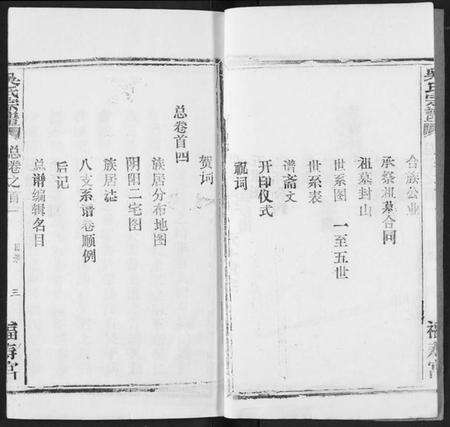 吴氏宗谱
合族公业
承祭祖墓合同
祖墓封山
世系图 一至五世
世系表
谱斋文
开印仪式
祝词
福寿宫
贺词
总卷首四
族居分布地图
阴阳二宅图
族居誌
八支系谱卷顺例
后记
总谱编辑名目
吴氏宗谱
总卷之首
目录
三
福寿宫